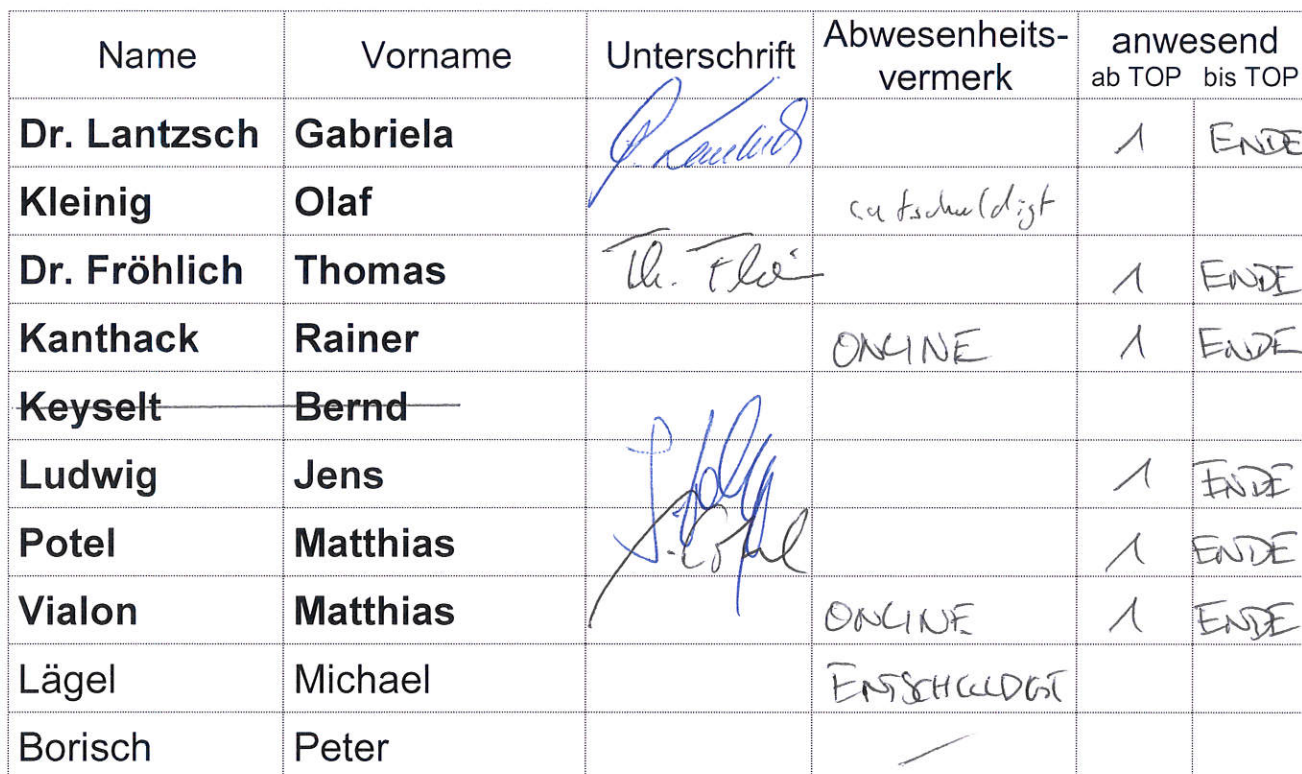 Name Vorname Unterschrift Abwesenheits- anwesend
vermerk ab TOP bis TOP
Dr. Lantzsch Gabriela 1 ENDE
Kleinig Olaf entschuldigt
Dr. Fröhlich Thomas Th. 1 ENDE
Kanthack Rainer ONLINE 1 ENDE
Keyselt Bernd
Ludwig Jens 1 ENDE
Potel Matthias 1 ENDE
Vialon Matthias ONLINE 1 ENDE
Lägel Michael ENTSCHULDGT
Borisch Peter —